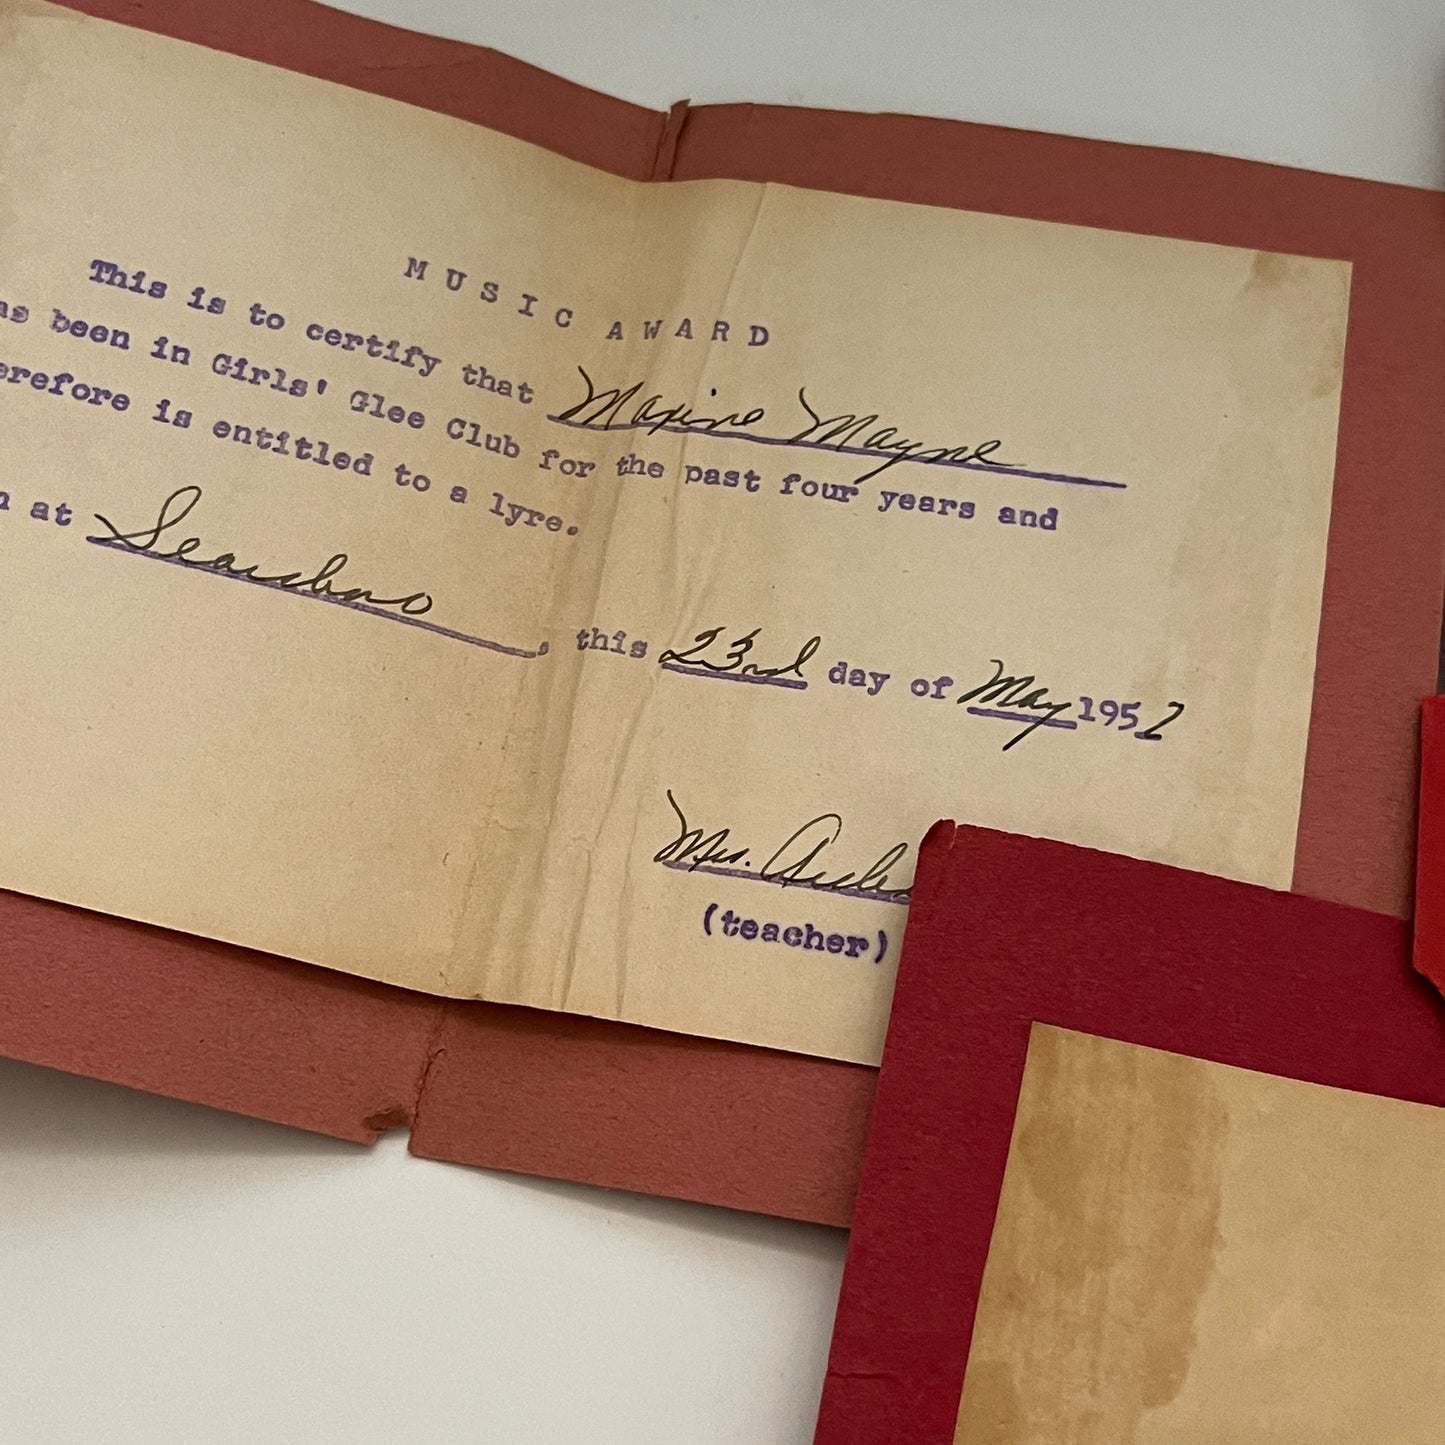 MUSIC AWARD
This is to certify that Maxine Mayne
been in Girls' Glee Club for the past four years and
is entitled to a lyre.
at Scarsboro, this 23rd day of May 1952
Mrs.
(teacher)